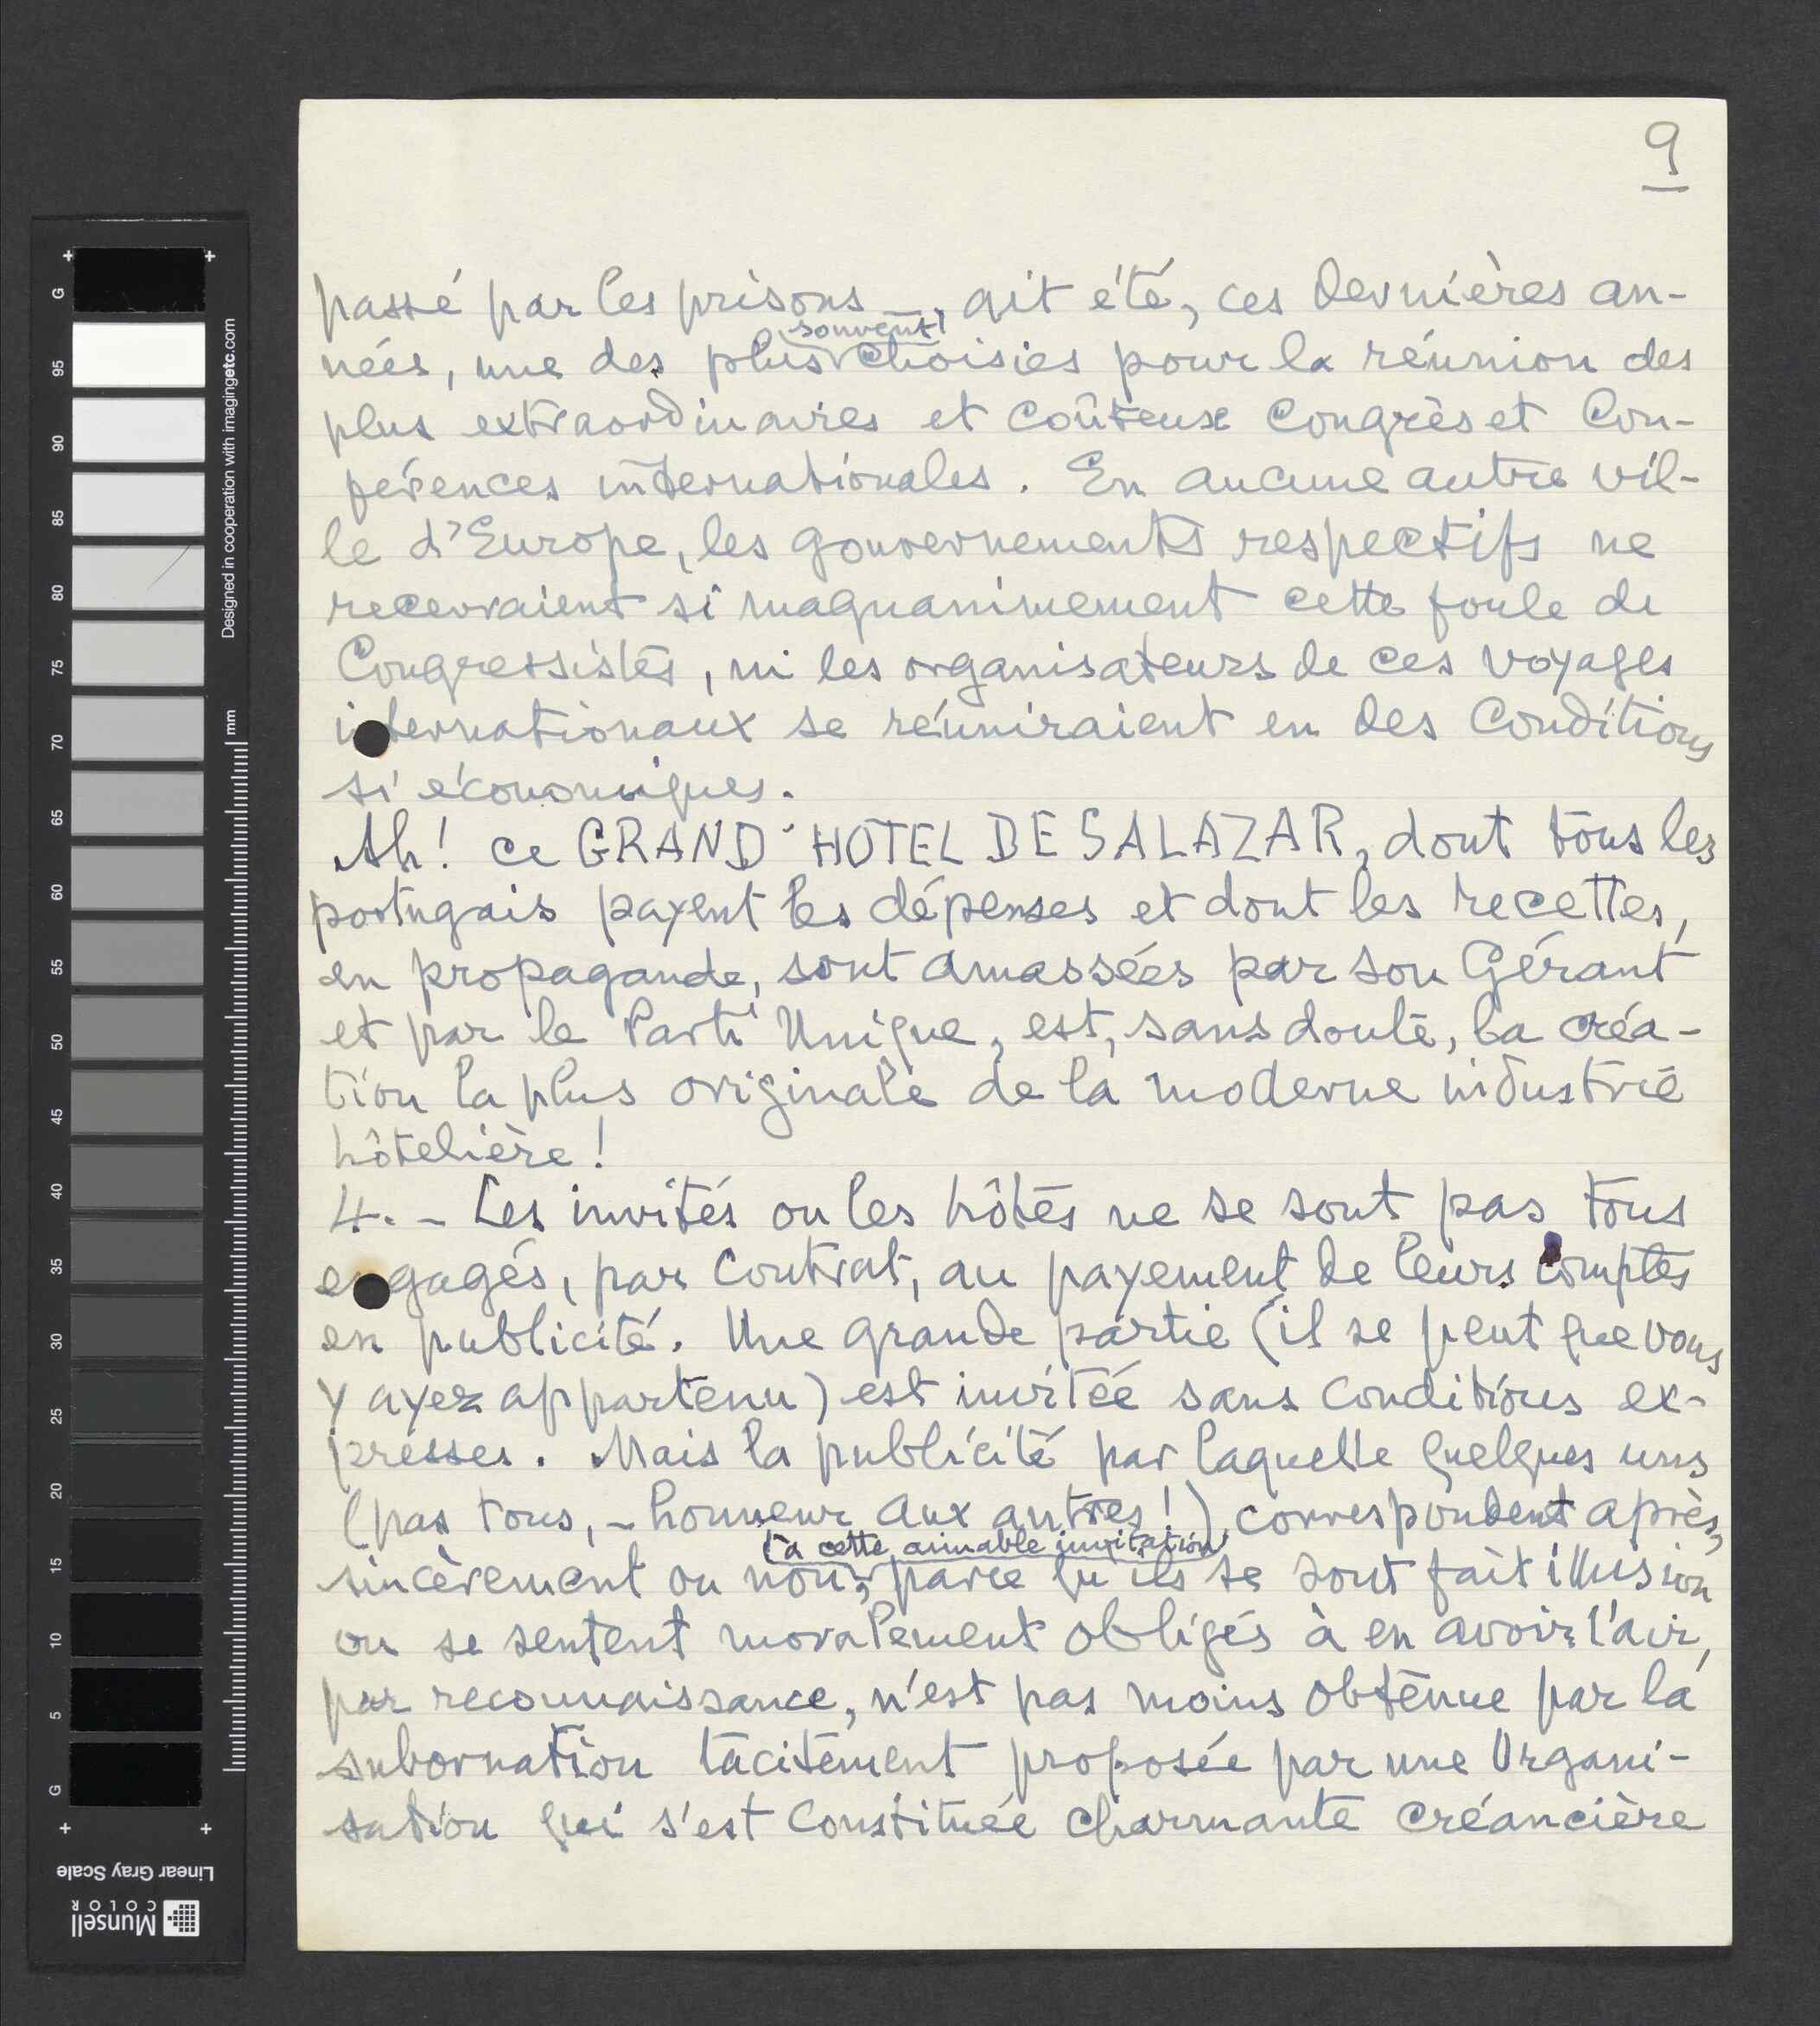 9
passé par les prisons —, ait été, ces dernières an-
souvent
nées, une des plus choisies pour la réunion des
plus extraordinaires et coûteux Congrès et Con-
férences internationales. En aucune autre vil-
le d'Europe, les gouvernements respectifs ne
recevraient si magnanimement cette foule de
Congressistes, ni les organisateurs de ces voyages
internationaux se réuniraient en des Conditions
si économiques.
Ah! ce GRAND HOTEL DE SALAZAR, dont tous les
portugais payent les dépenses et dont les recettes,
en propagande, sont amassées par son Gérant
et par le Parti Unique, est, sans doute, la créa-
tion la plus originale de la moderne industrie
hôtelière!
4. - Les invités ou les hôtes ne se sont pas tous
engagés, par contrat, au payement de leurs comptes
en publicité. Une grande partie (il se peut que vous
y ayez appartenu) est invitée sans conditions ex-
presses. Mais la publicité par laquelle quelques uns
(pas tous, - honneur aux autres!) correspondent après,
(à cette aimable invitation)
sincèrement ou non, parce qu'ils se sont fait illusion
ou se sentent moralement obligés à en avoir l'air,
par reconnaissance, n'est pas moins obtenue par la
subornation tacitement proposée par une Organi-
sation qui s'est Constituée charmante créancière
G 95 90 85 80 75 70 65 60 55 50 45 40 35 30 25 20 15 10 5 G
Designed in cooperation with imagingetc.com
mm
Linear Gray Scale
Munsell
COLOR